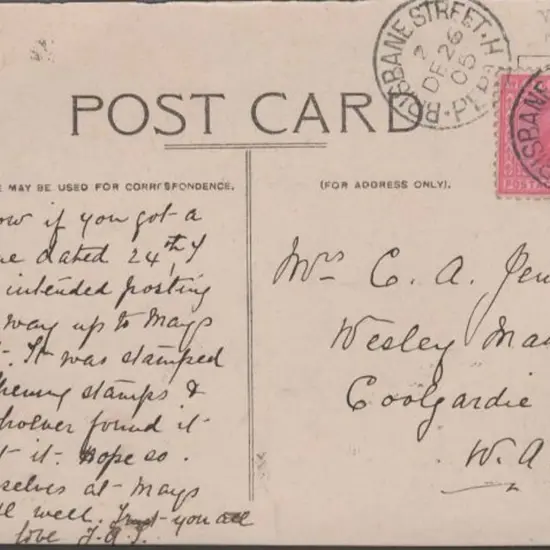 BRISBANE STREET·H
PERTH
2
DE 26
05
POST CARD
E MAY BE USED FOR CORRESPONDENCE.
(FOR ADDRESS ONLY).
ow if you got a
e dated 24th I
intended posting
way up to Mays
t. It was stamped
penny stamps &
hoever found it
t it. Hope so.
selves at Mays
ll well. Trust you all
love J.A.J.
Mrs C. A. Jen
Wesley Man
Coolgardie
W.A
ISBAN
POSTA